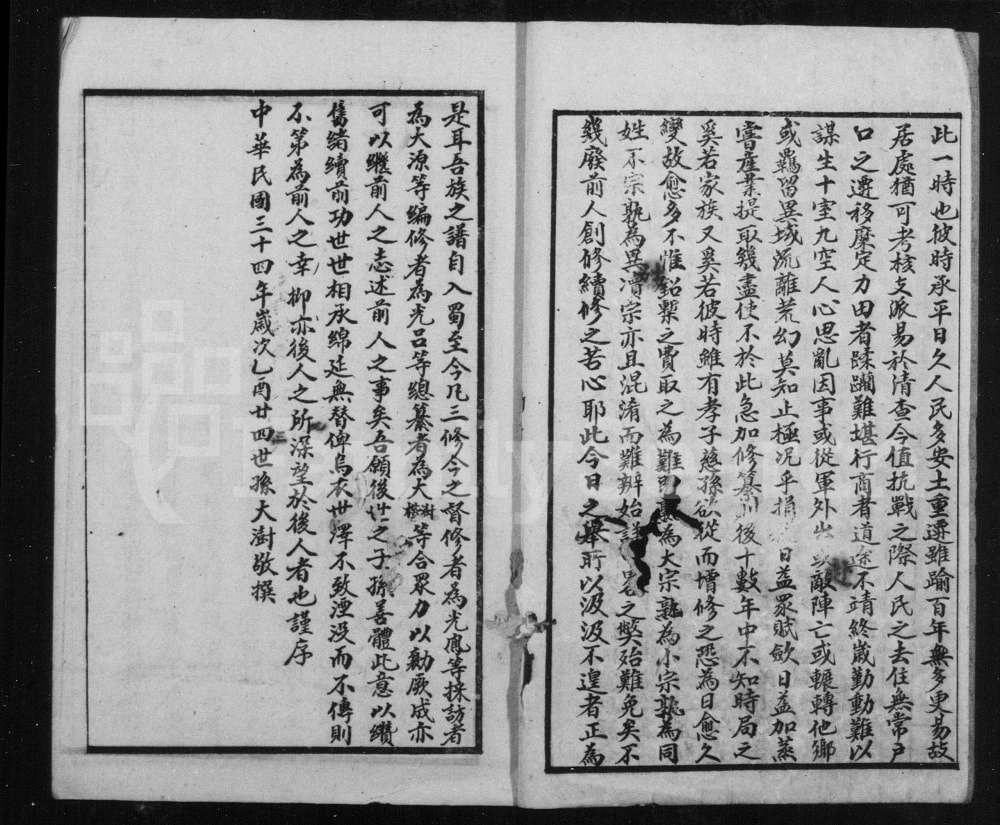 此一時也彼時承平日久人民多安土重遷雖踰百年無多更易故
居處猶可考核支派易於清查今值抗戰之際人民之去住無常戶
口之遷移靡定力田者蹂躪難堪行商者道途不靖終歲勤動難以
謀生十室九空人心思亂因事或從軍外出敵陣亡或輾轉他鄉
或羈留異域流離荒幻莫知止極况乎捐日益眾賦歛日益加蒸
嘗產業提取幾盡使不於此急加修纂則後十數年中不知時局之
奚若家族又奚若彼時雖有孝子慈孫欲從而增修之恐為日愈久
變故愈多不惟鋟槧之費取之為難即孰為大宗孰為小宗孰為同
姓不宗孰為異宗亦且混淆而難辨始之弊殆難免矣不
幾廢前人創修續修之苦心耶此今日之舉所以汲汲不遑者正為
是耳吾族之譜自入蜀至今凡三修今之督修者為光鳳等採訪者
為大源等編修者為光呂等總纂者為大澍等合眾力以勷厥成亦
可以繼前人之志述前人之事矣吾願後世之子孫善體此意以纘
舊緒續前功世世相承綿延無替俾烏衣世澤不致湮没而不傳則
不第為前人之幸抑亦後人之所深望於後人者也謹序
中華民國三十四年歲次乙酉廿四世孫大澍敬撰